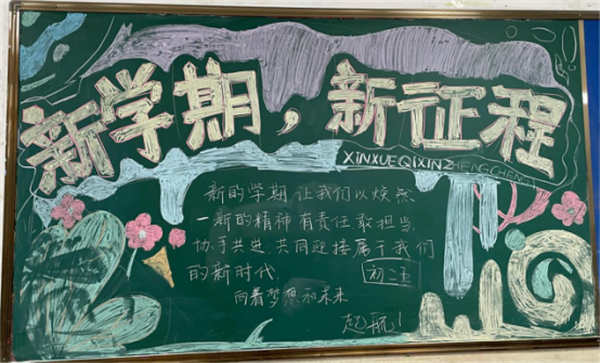 新学期，新征程
XINXUEQIXINZHENGCHENG
新的学期,让我们以焕然
一新的精神有责任敢担当
协手共进,共同迎接属于我们
的新时代
向着梦想和未来
起航！